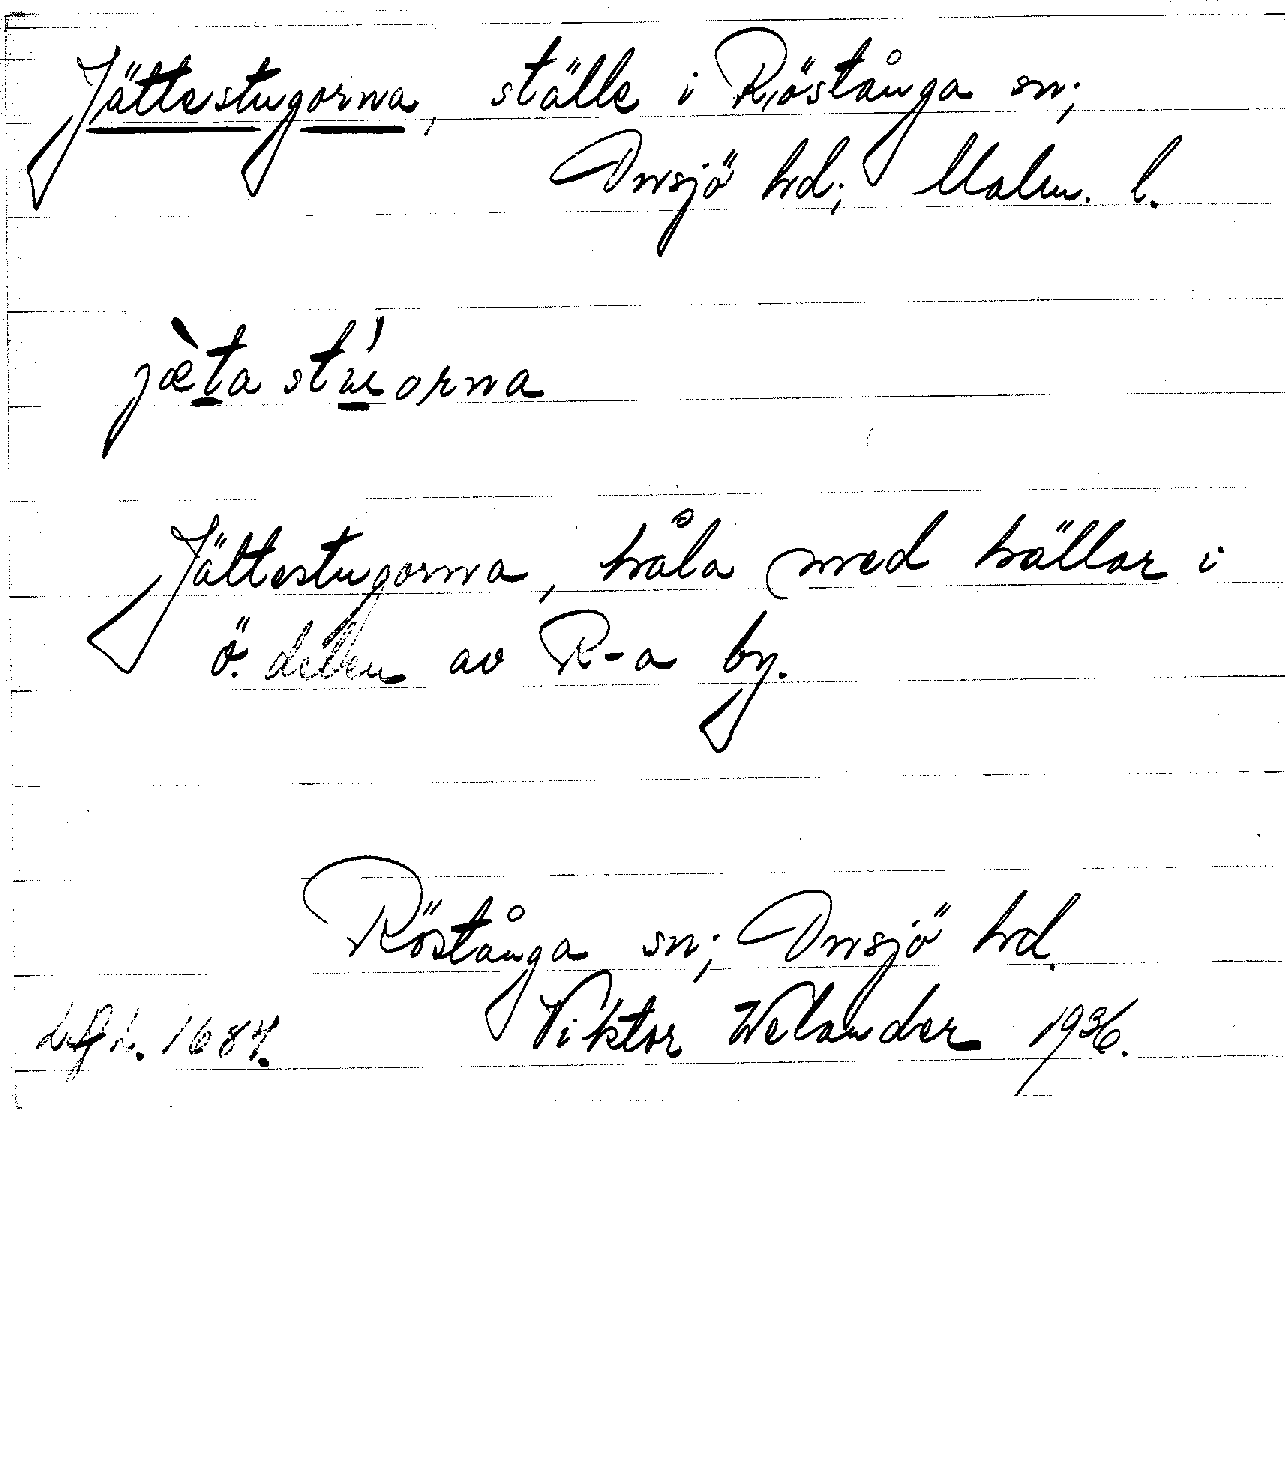 Jättestugorna, ställe i Röstånga sn;
Onsjö hd; Malm. l.
jæ̀ta stúorna
Jättestugorna, håla med hällar i
ö. delen av R-a by.
Röstånga sn; Onsjö hd.
1684. Viktor Welander 1936.